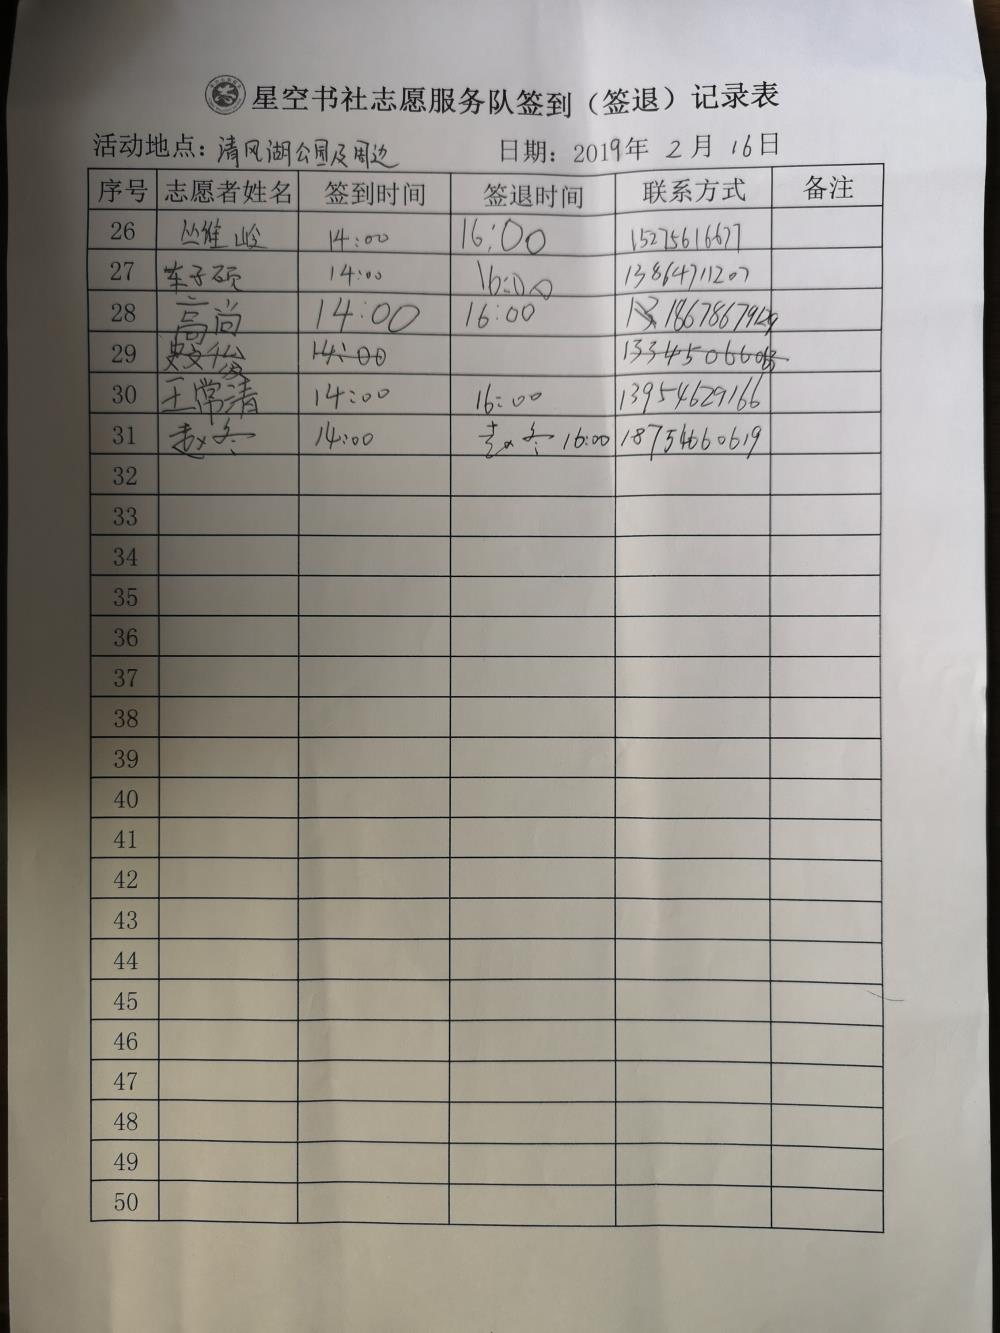 星空书社志愿服务队签到（签退）记录表
活动地点：清风湖公园及周边 日期：2019年 2月 16日
序号 志愿者姓名 签到时间 签退时间 联系方式 备注
26 丛维峻 14:00 16:00 15275616627
27 车子硕 14:00 16:00 13864711207
28 高尚 14:00 16:00
29 14:00
30 王常清 14:00 16:00 13954629166
31 赵冬 14:00 赵冬 16:00 18754660619
32
33
34
35
36
37
38
39
40
41
42
43
44
45
46
47
48
49
50